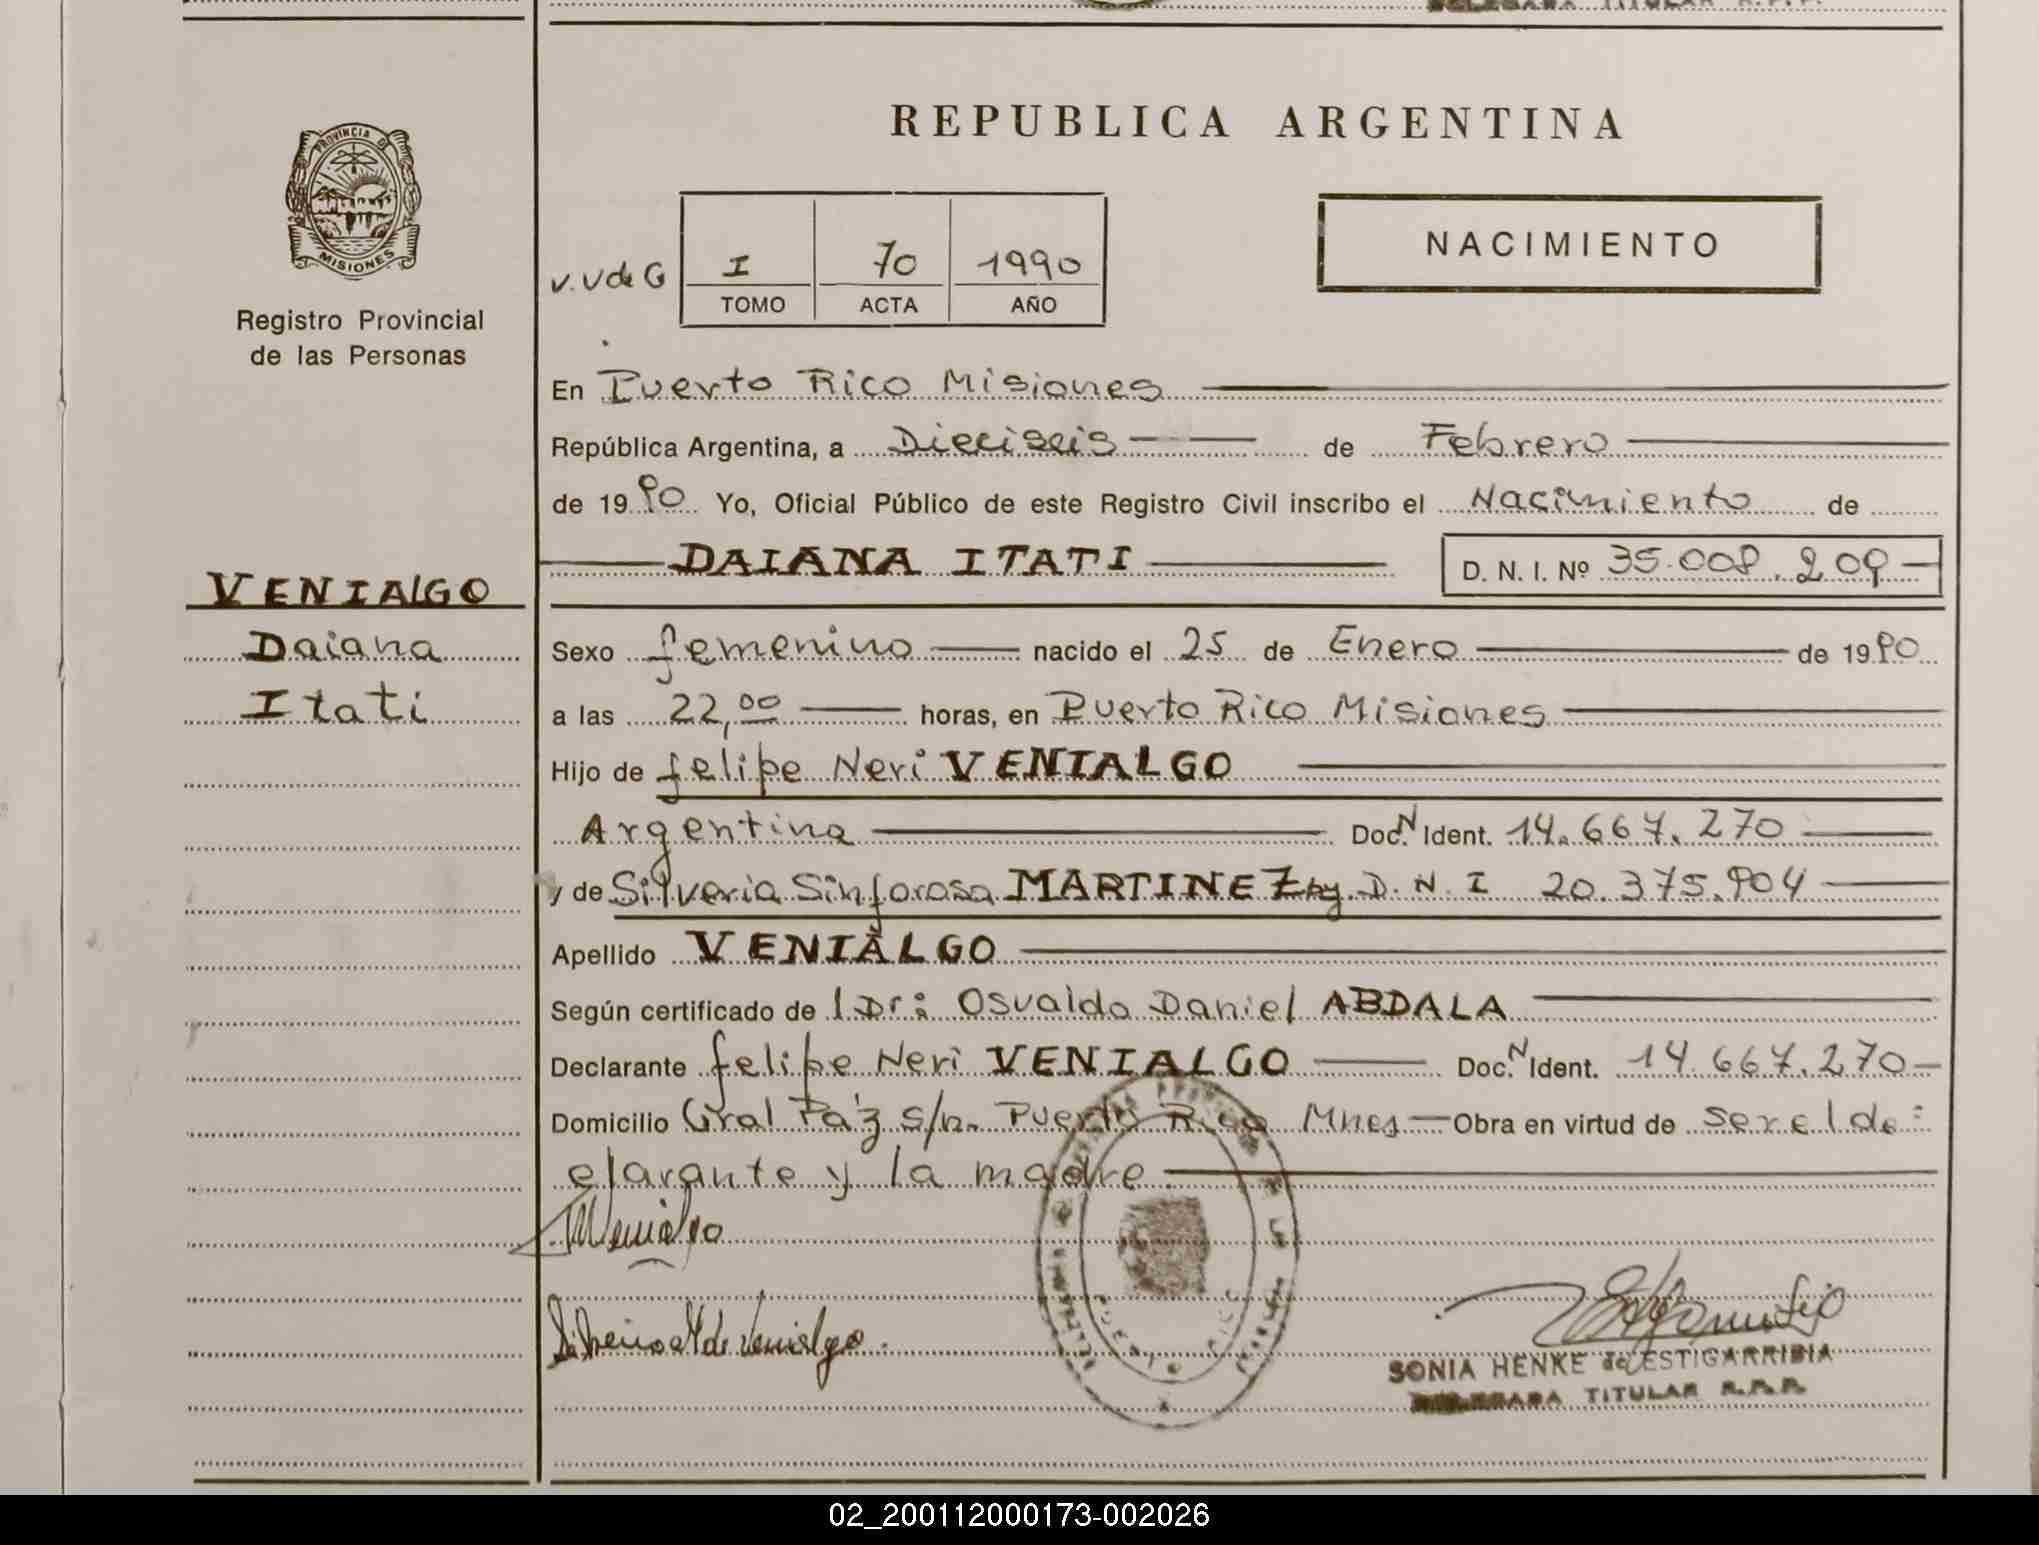 REPUBLICA ARGENTINA
PROVINCIA DE
MISIONES
Registro Provincial
de las Personas
NACIMIENTO
v. v de G
I 70 1990
TOMO ACTA AÑO
En Puerto Rico Misiones
República Argentina, a Dieciseis de Febrero
de 1990 Yo, Oficial Público de este Registro Civil inscribo el Nacimiento de
DAIANA ITATI D. N. I. Nº 35.008.209
VENIALGO
Daiana
Itati
Sexo femenino nacido el 25 de Enero de 1990
a las 22,00 horas, en Puerto Rico Misiones
Hijo de felipe Neri VENIALGO
Argentina Doc. N Ident. 14.667.270
y de Silveria Sinforosa MARTINEZ hy D. N. I 20.375.904
Apellido VENIALGO
Según certificado de l Dr: Osvaldo Daniel ABDALA
Declarante felipe Neri VENIALGO Doc. N Ident. 14.667.270
Domicilio Gral Páz s/n. Puerto Rico Mnes Obra en virtud de ser el de
clarante y la madre
SONIA HENKE de ESTIGARRIBIA
TITULAR R.P.P.
02_200112000173-002026